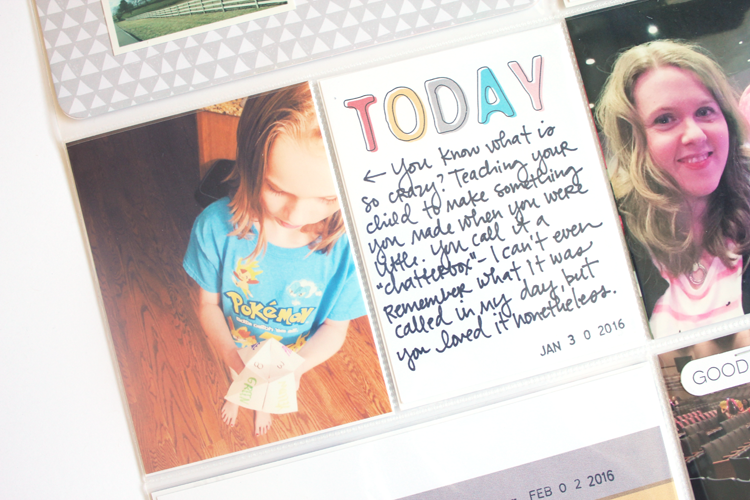 TODAY
← You know what is
so crazy? Teaching your
child to make something
you made when you were
little. You call it a
"chatterbox" - I can't even
remember what it was
called in my day, but
you loved it nonetheless.
JAN 3 0 2016
POKéMON
GREEN
GOOD
FEB 0 2 2016